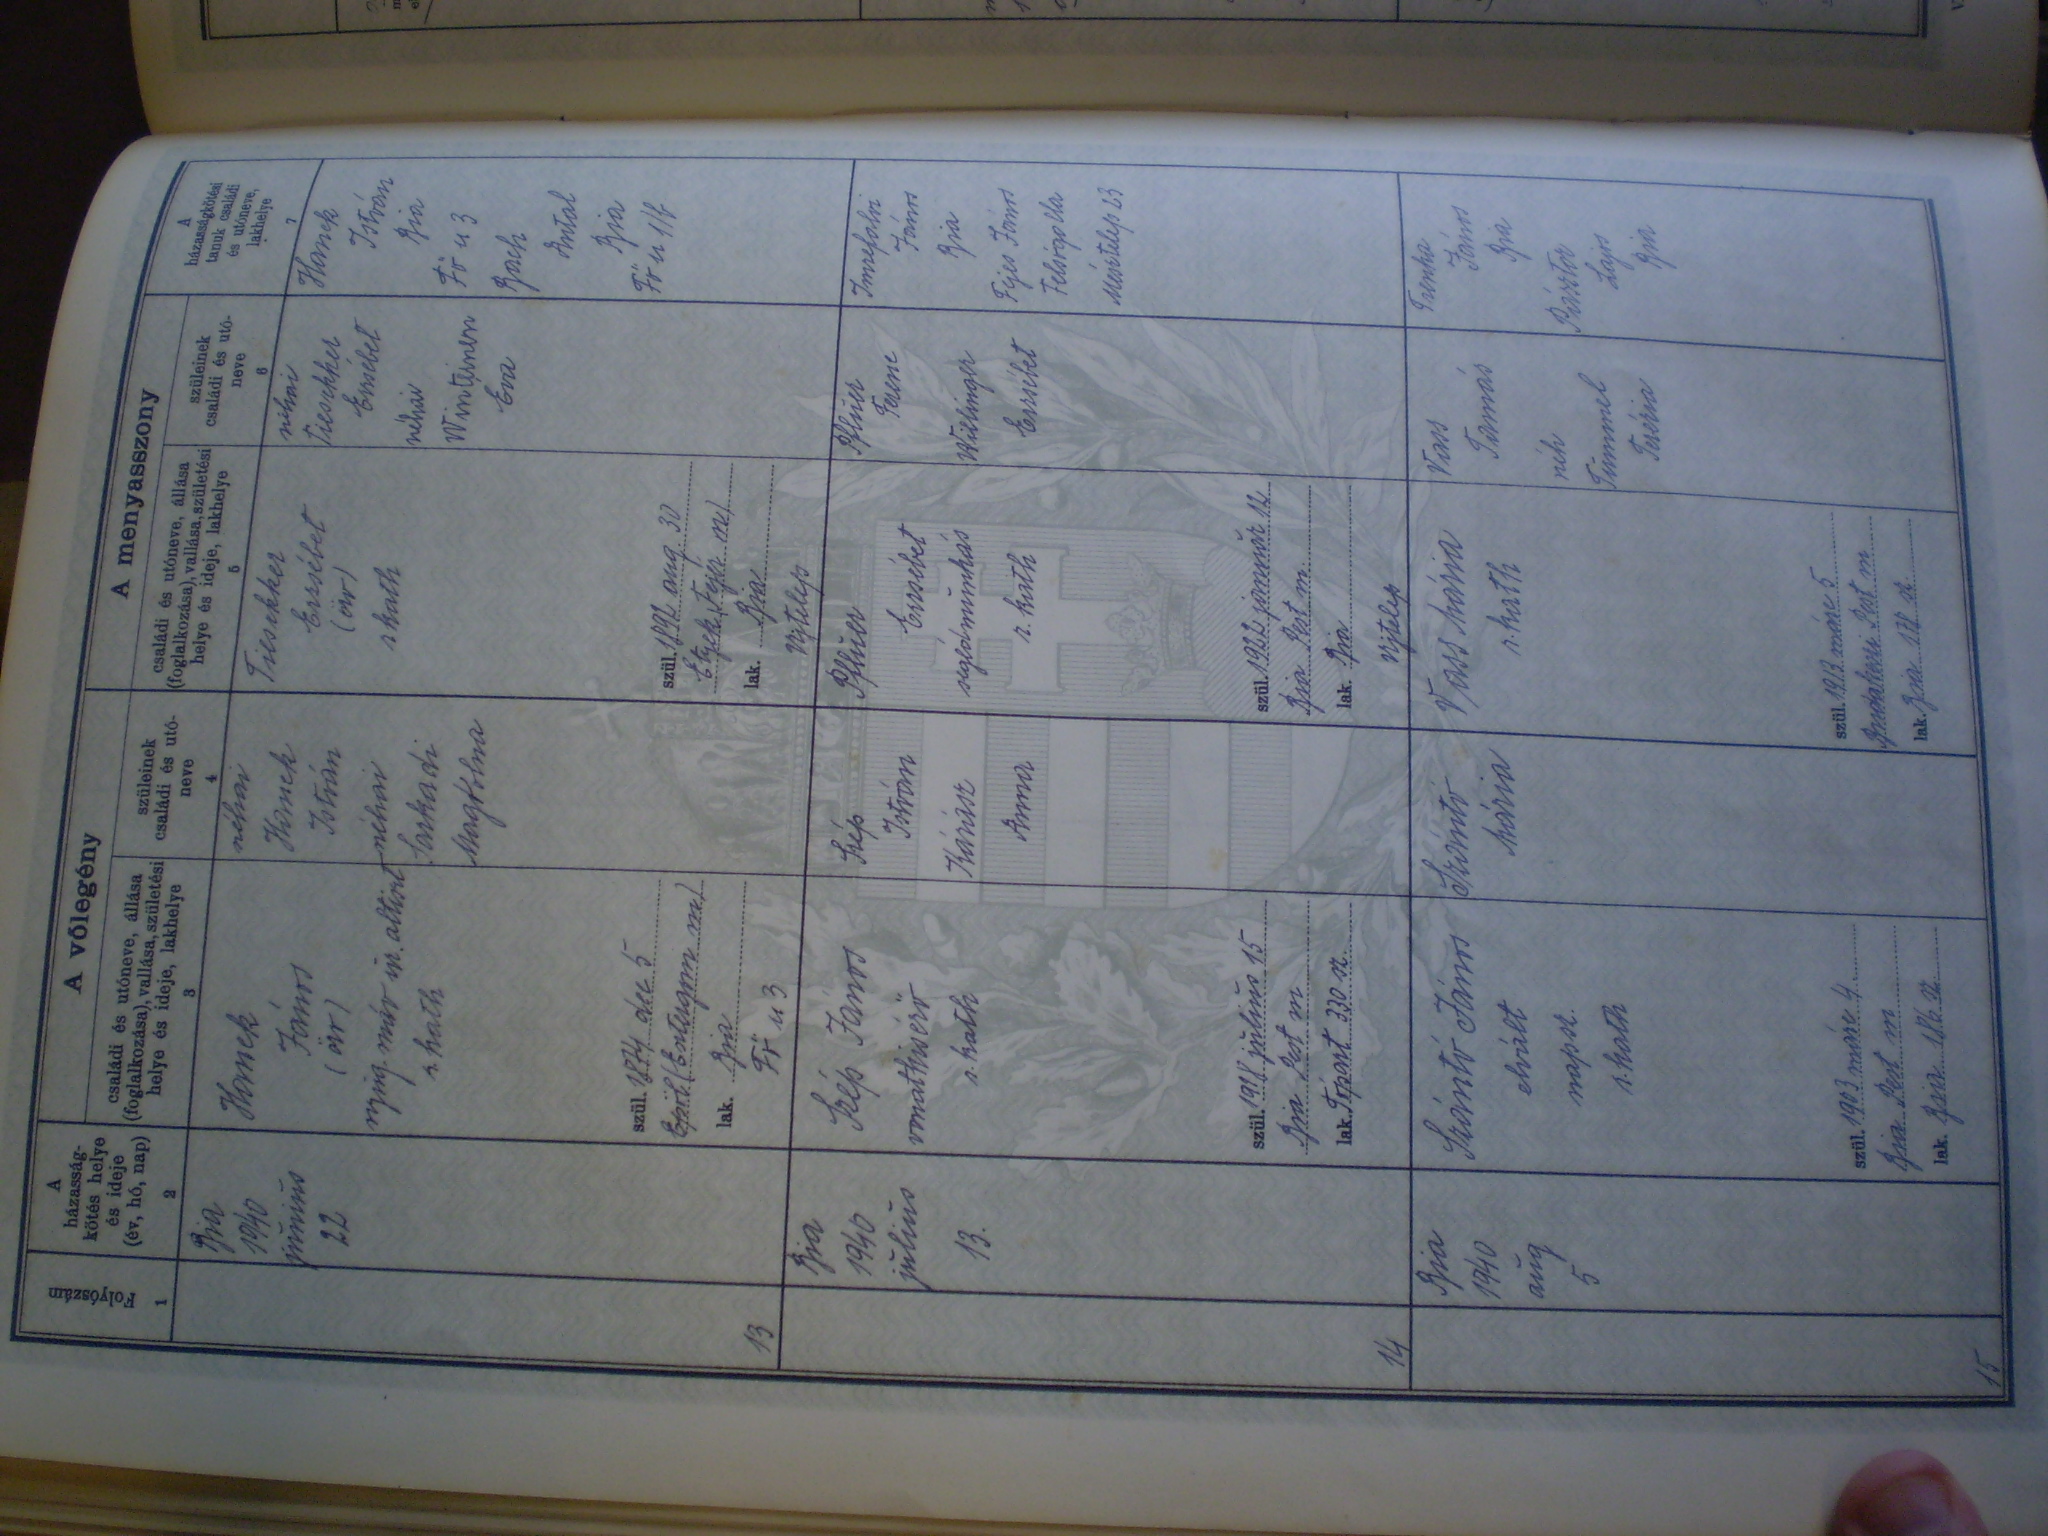 A vőlegény
A menyasszony
Folyószám
1
A
házasság-
kötés helye
és ideje
(év, hó, nap)
2
családi és utóneve, állása
(foglalkozása), vallása, születési
helye és ideje, lakhelye
3
szüleinek
családi és utó-
neve
4
családi és utóneve, állása
(foglalkozása), vallása, születési
helye és ideje, lakhelye
5
szüleinek
családi és utó-
neve
6
A
házasságkötési
tanuk családi
és utóneve,
lakhelye
7
13
Bia
1940
június
22
Hornek
János
(özv)
nyug. máv üz. altiszt
r. kath
szül. 1874 dec 5
(Esztergom m)
lak. Bia
Fő u 3
néhai
Hornek
István
néhai
Sarkadi
Magdolna
Trieschker
Erzsébet
(özv)
r. kath
szül. 1892 aug. 30
Etyek (Fejér m)
lak. Bia
Ujtelep
néhai
Trieschker
Erzsébet
néhai
Éva
Hornek
István
Bia
Fő u 3
Bach
Antal
Bia
Fő u
14
Bia
1940
július
13.
Szép János
vonatkisérő
r. kath
szül. 1918 július 15
Bia Pest m
lak. Tópart 330 sz.
Szép
István
Kárász
Anna
Pfluer
Erzsébet
r. kath
szül. 1922 január 12
Bia Pest m.
lak. Bia
Ujtelep
Pfluer
Ferenc
Willinger
Erzsébet
János
Bia
Fejes János
Felsőgalla
Mésztelep 23
15
Bia
1940
aug
5
Szántó János
elvált
napsz.
r. kath
szül. 1903 márc 4
Bia Pest m
lak. Bia 186 sz.
Szántó
Mária
Vass Mária
r. kath
szül. 1913 márc 5
Budakeszi Pest m
lak. Bia 178 sz.
Vass
Tamás
néh
Timmel
Terézia
Trenka
János
Bia
Pásztor
Lajos
Bia